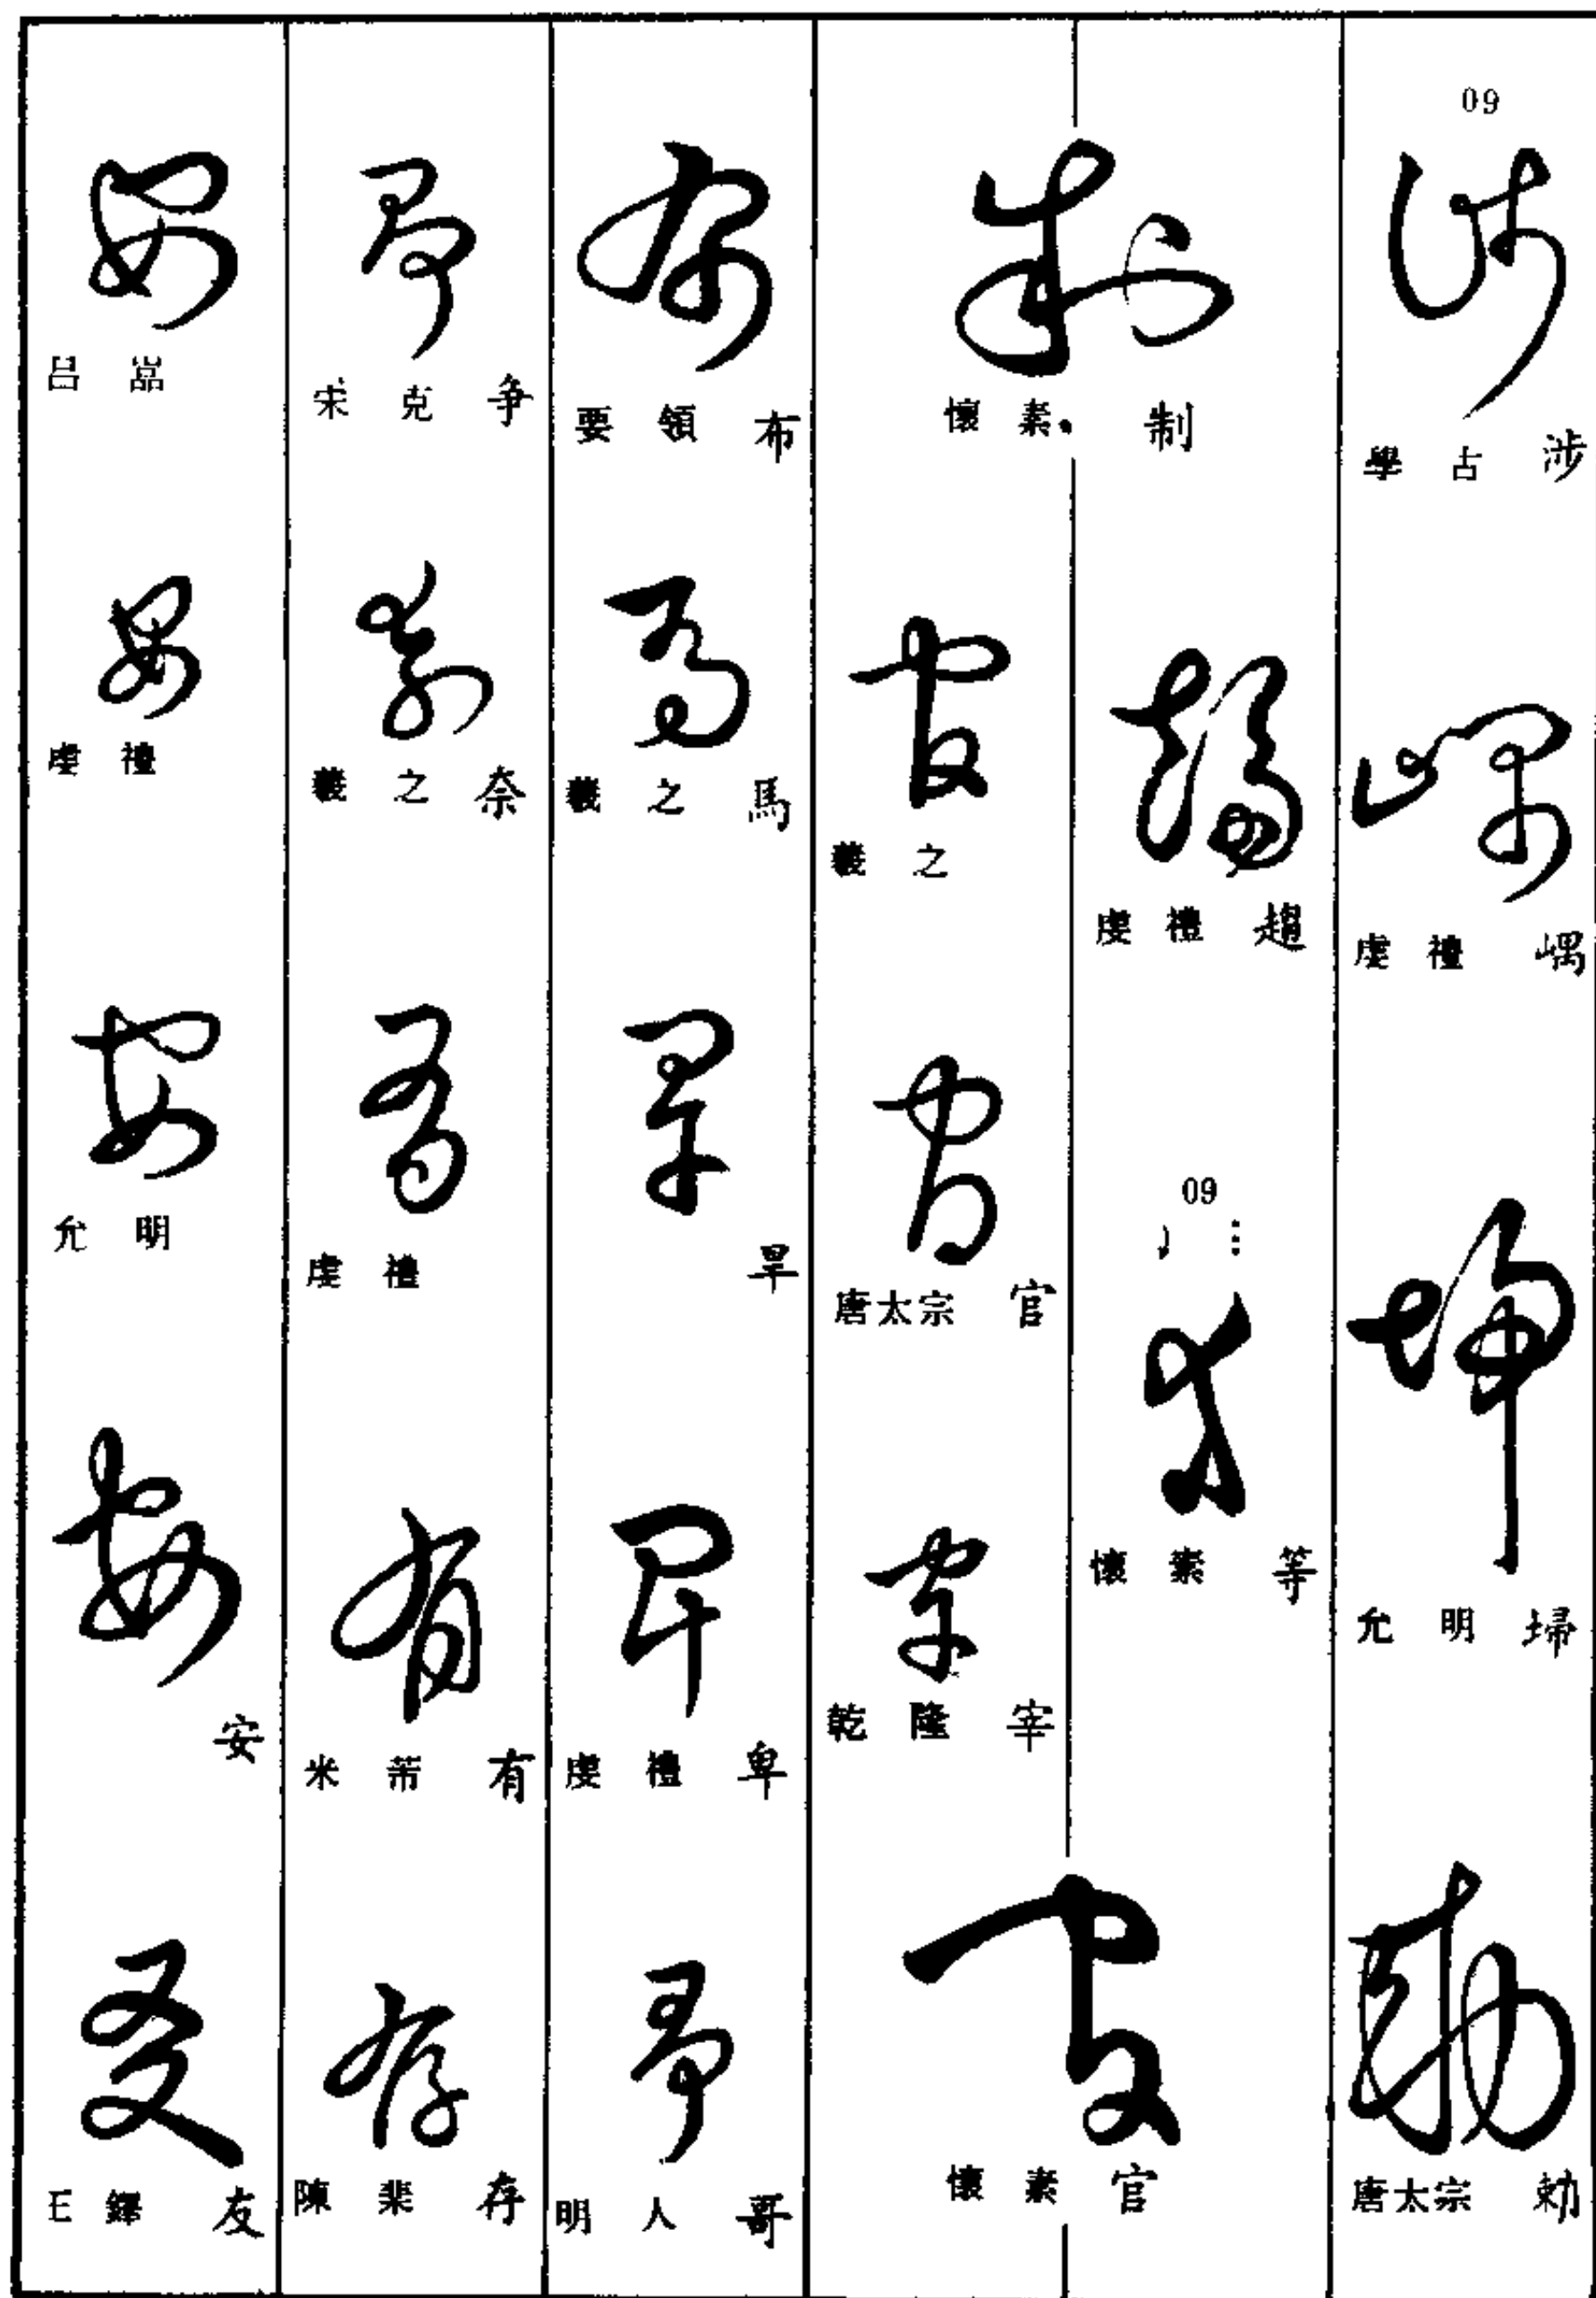 09
學古 涉
虔禮 嵎
允明 埽
唐太宗 勅
懷素 制
虔禮 趨
09
懷素 等
羲之
唐太宗 官
乾隆 宰
懷素 官
要領 布
羲之 馬
旱
虔禮 卑
明人 哥
宋克 争
羲之 奈
虔禮
米芾 有
陳裴 存
虔禮
允明
安
王鐸 友